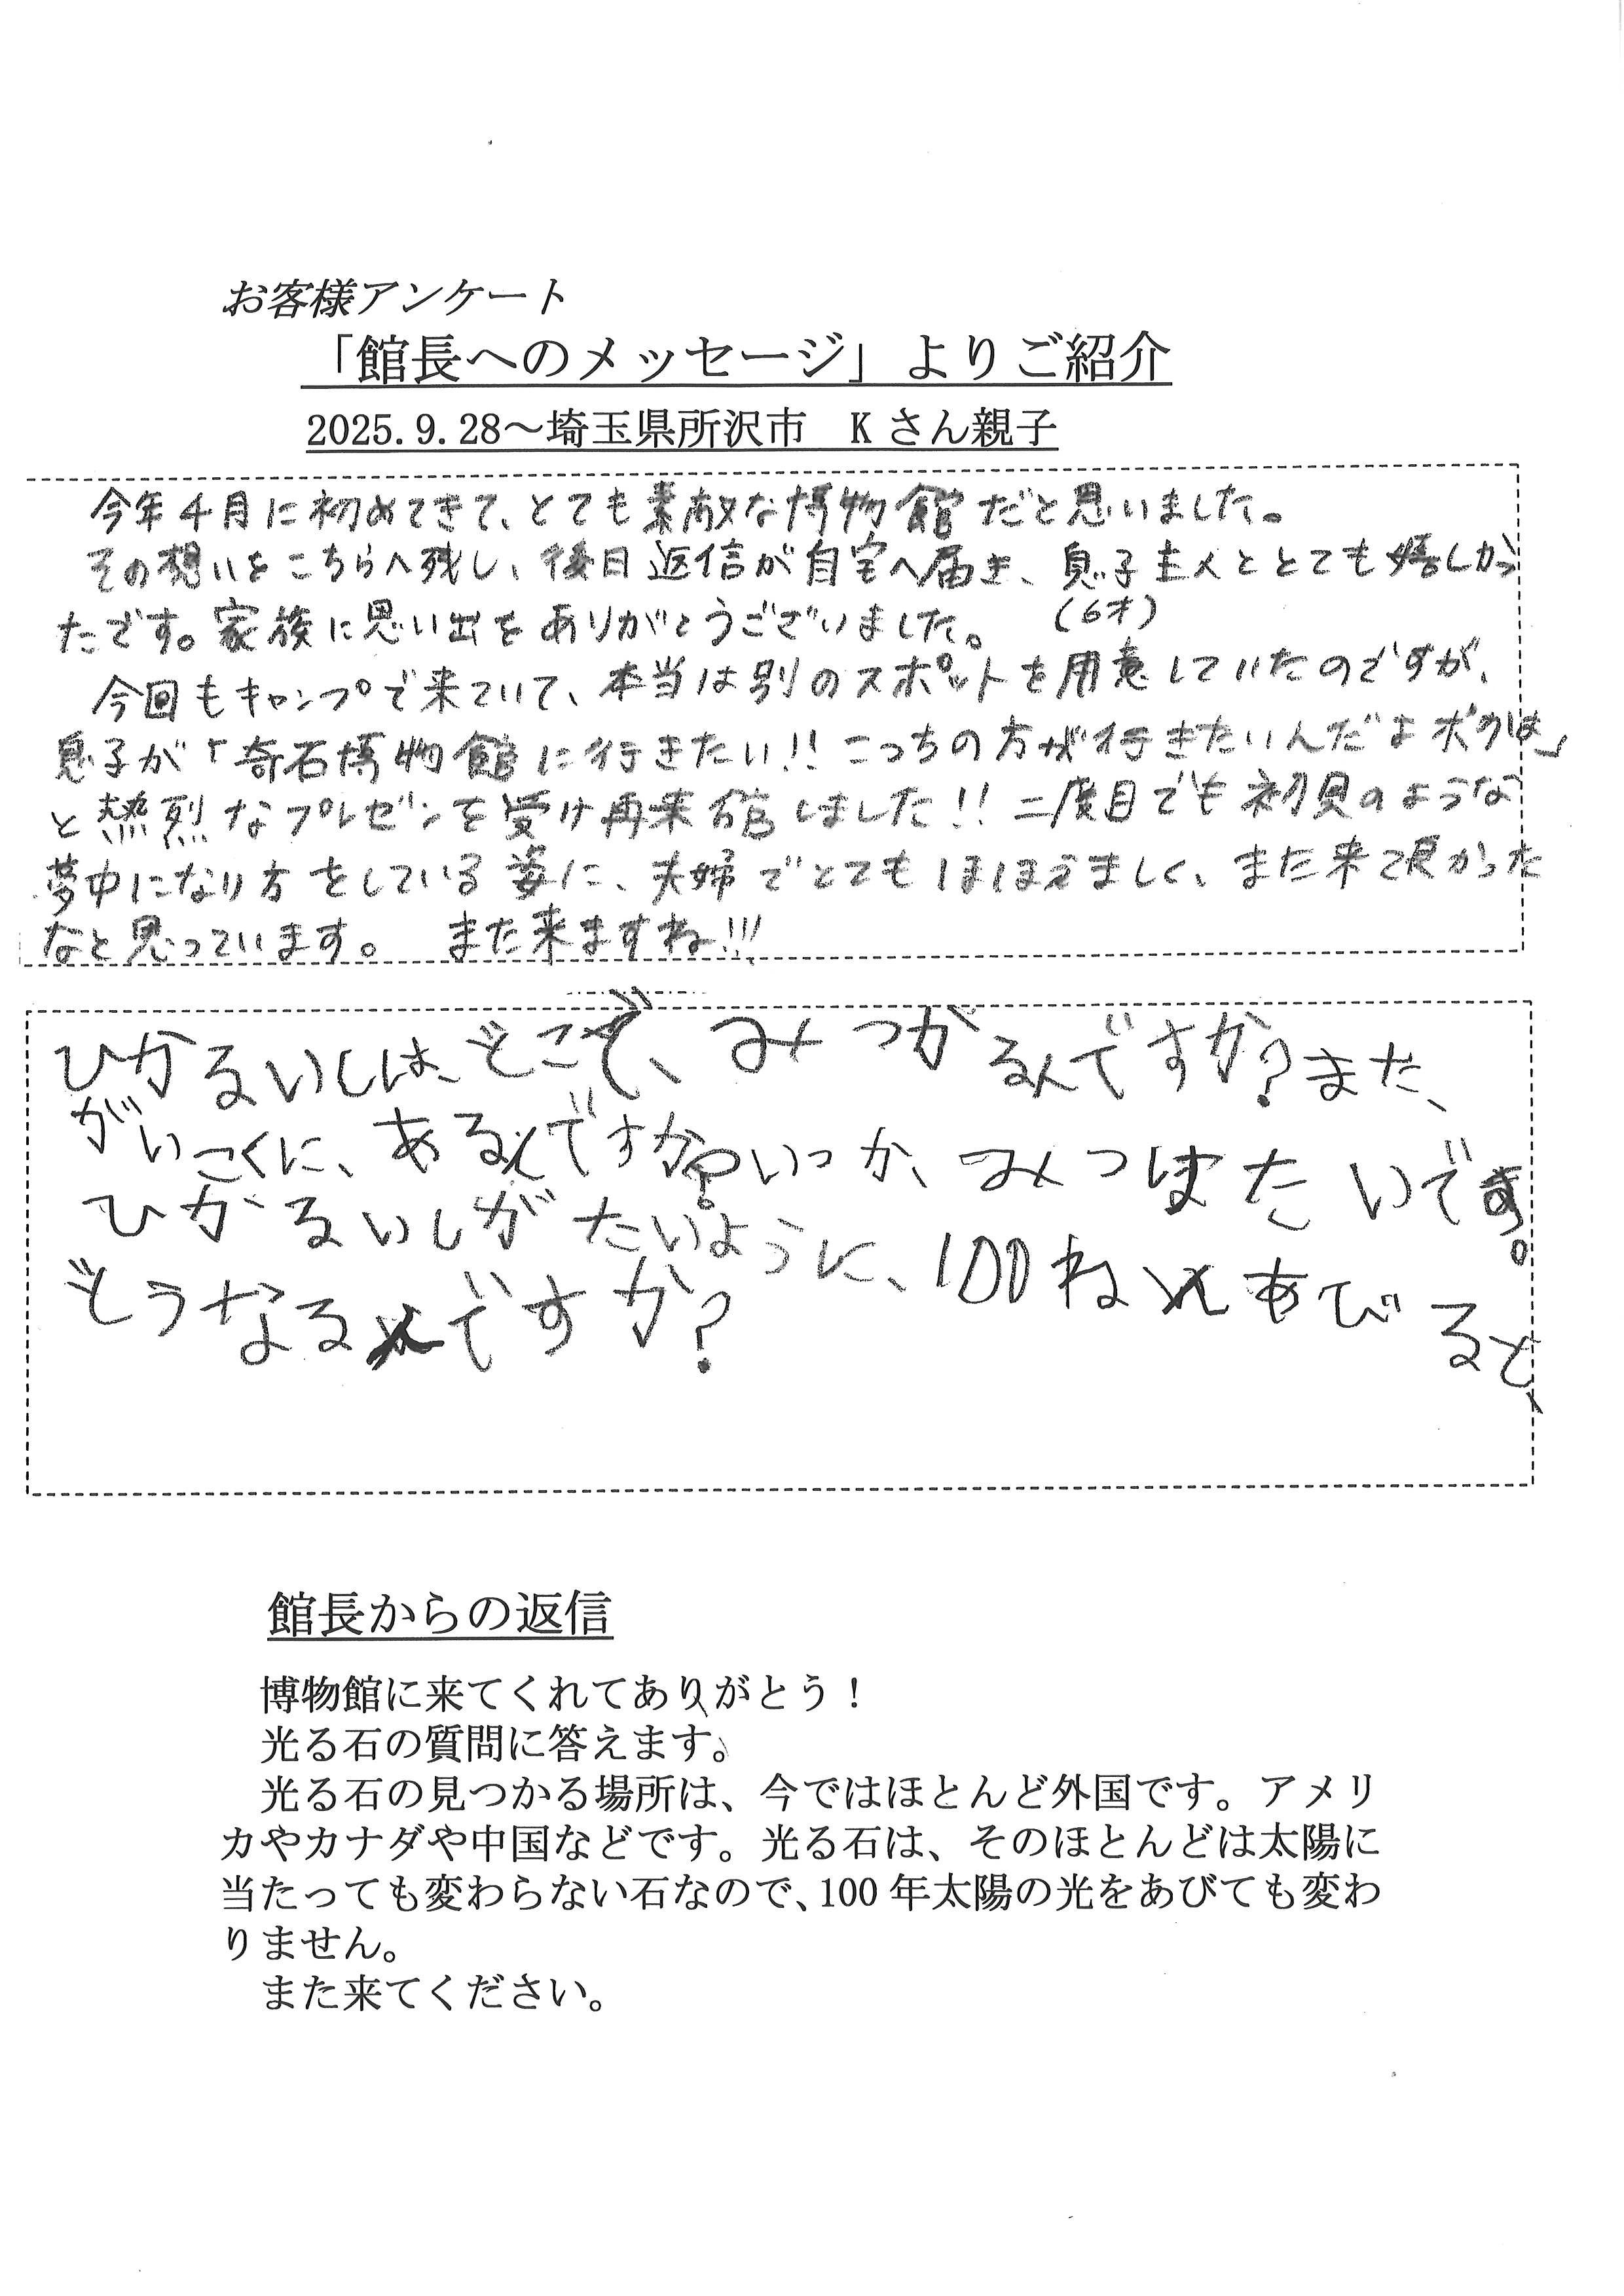 お客様アンケート
「館長へのメッセージ」よりご紹介
2025.9.28～埼玉県所沢市　Kさん親子
今年4月に初めてきて、とても素敵な博物館だと思いました。
その想いをこちらへ残し、後日返信が自宅へ届き、息子主人ととても嬉しかっ
(6才)
たです。家族に思い出をありがとうございました。
今回もキャンプで来ていて、本当は別のスポットを用意していたのですが、
息子が「奇石博物館に行きたい!! こっちの方が行きたいんだよボクは」
と熱烈なプレゼンを受け再来館しました!! 二度目でも初見のような
夢中になり方をしている姿に、夫婦でとてもほほえましく、また来て良かった
なと思っています。　また来ますね!!!
ひかるいしは、どこで、みつかるんですか?また、
がいこくに、あるんですか?いつか、みつけたいです。
ひかるいしがたいように、100ねんあびると、
どうなるんですか?
館長からの返信
博物館に来てくれてありがとう！
光る石の質問に答えます。
光る石の見つかる場所は、今ではほとんど外国です。アメリ
カやカナダや中国などです。光る石は、そのほとんどは太陽に
当たっても変わらない石なので、100年太陽の光をあびても変わ
りません。
また来てください。